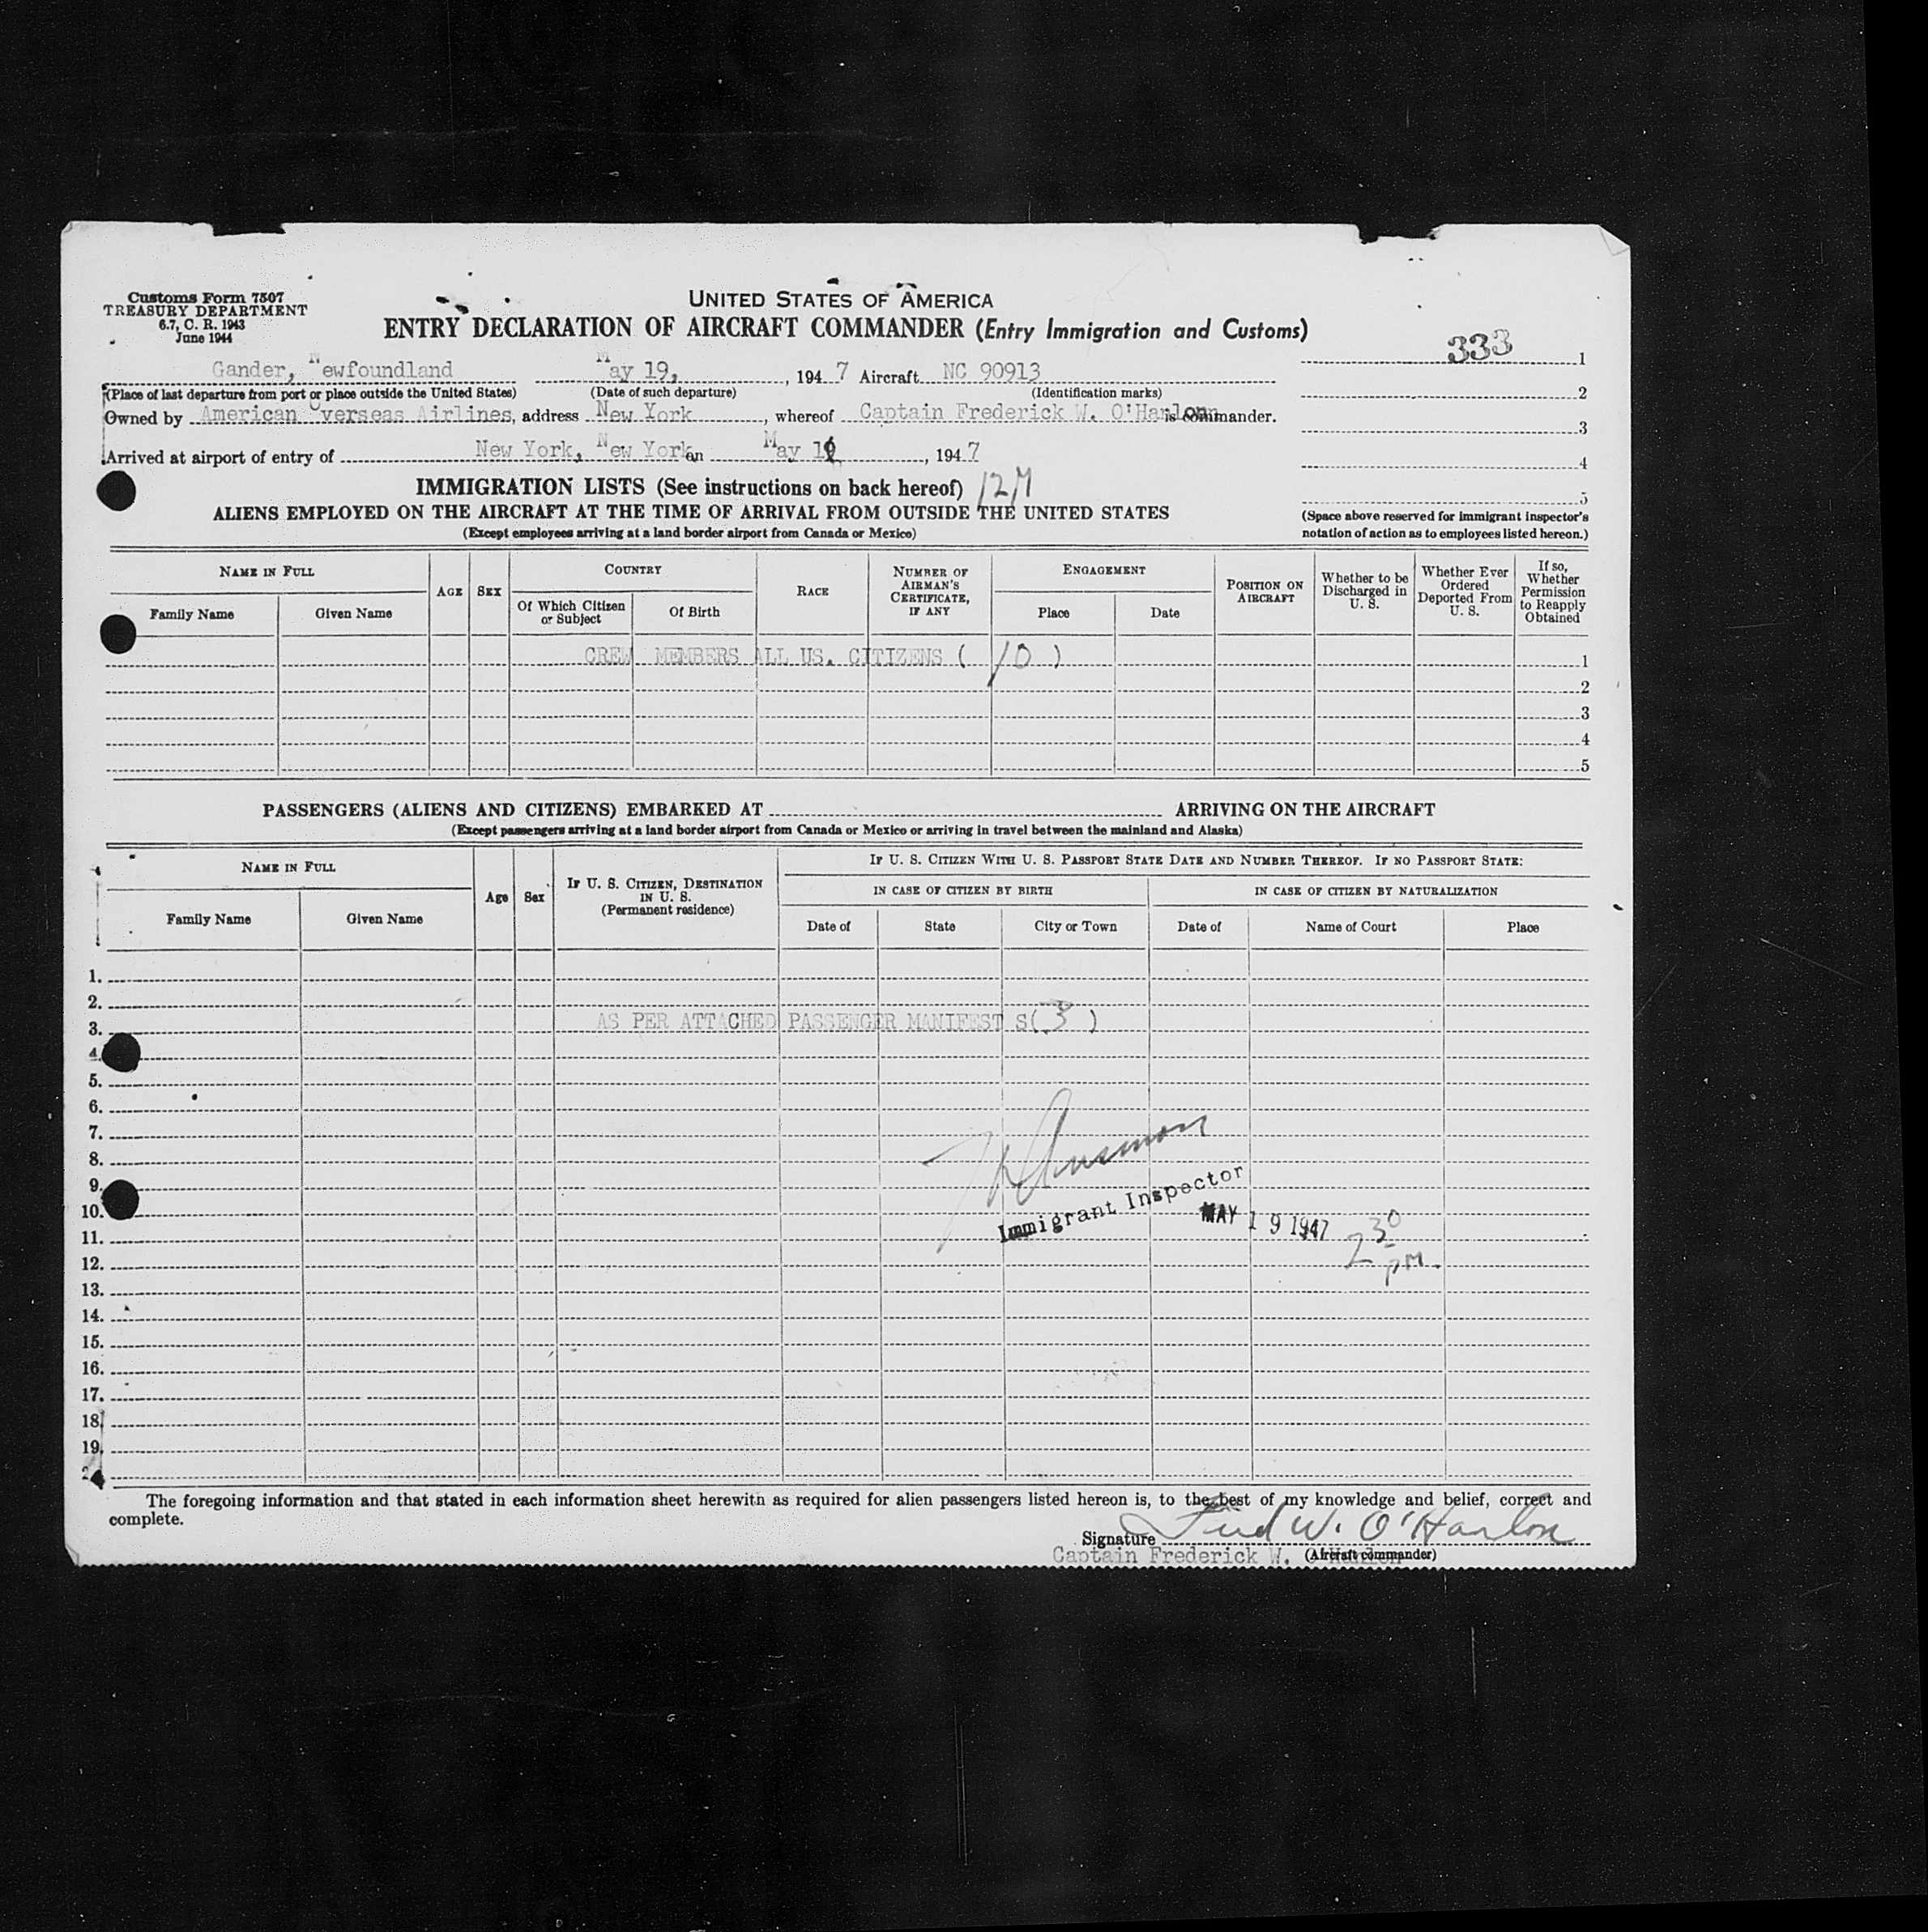 Customs Form 7507
TREASURY DEPARTMENT
6.7, C. R. 1943
June 1944
UNITED STATES OF AMERICA
ENTRY DECLARATION OF AIRCRAFT COMMANDER (Entry Immigration and Customs)
333 1
Gander, Newfoundland May 19, , 1947 Aircraft NC 90913
(Place of last departure from port or place outside the United States) (Date of such departure) (Identification marks)
2
Owned by American Overseas Airlines, address New York, whereof Captain Frederick W. O'Hanlon is commander.
3
Arrived at airport of entry of New York, New York on May 19, 1947
4
IMMIGRATION LISTS (See instructions on back hereof)
5
ALIENS EMPLOYED ON THE AIRCRAFT AT THE TIME OF ARRIVAL FROM OUTSIDE THE UNITED STATES
(Except employees arriving at a land border airport from Canada or Mexico)
(Space above reserved for immigrant inspector's
notation of action as to employees listed hereon.)
NAME IN FULL
Family Name Given Name
AGE SEX
COUNTRY
Of Which Citizen or Subject Of Birth
RACE
NUMBER OF AIRMAN'S CERTIFICATE, IF ANY
ENGAGEMENT
Place Date
POSITION ON AIRCRAFT
Whether to be Discharged in U. S.
Whether Ever Ordered Deported From U. S.
If so, Whether Permission to Reapply Obtained
CREW MEMBERS ALL US. CITIZENS ( 10 ) 1
2
3
4
5
PASSENGERS (ALIENS AND CITIZENS) EMBARKED AT ARRIVING ON THE AIRCRAFT
(Except passengers arriving at a land border airport from Canada or Mexico or arriving in travel between the mainland and Alaska)
NAME IN FULL
Family Name Given Name
Age Sex
IF U. S. CITIZEN, DESTINATION IN U. S.
(Permanent residence)
IF U. S. CITIZEN WITH U. S. PASSPORT STATE DATE AND NUMBER THEREOF. IF NO PASSPORT STATE:
IN CASE OF CITIZEN BY BIRTH IN CASE OF CITIZEN BY NATURALIZATION
Date of State City or Town Date of Name of Court Place
1.
2.
3. AS PER ATTACHED PASSENGER MANIFEST S( 3 )
4.
5.
6.
7.
8.
9.
10.
Immigrant Inspector
MAY 19 1947 2 30 PM.
11.
12.
13.
14.
15.
16.
17.
18.
19.
The foregoing information and that stated in each information sheet herewith as required for alien passengers listed hereon is, to the best of my knowledge and belief, correct and
complete.
Signature Fred W. O'Hanlon
Captain Frederick W. (Aircraft commander)